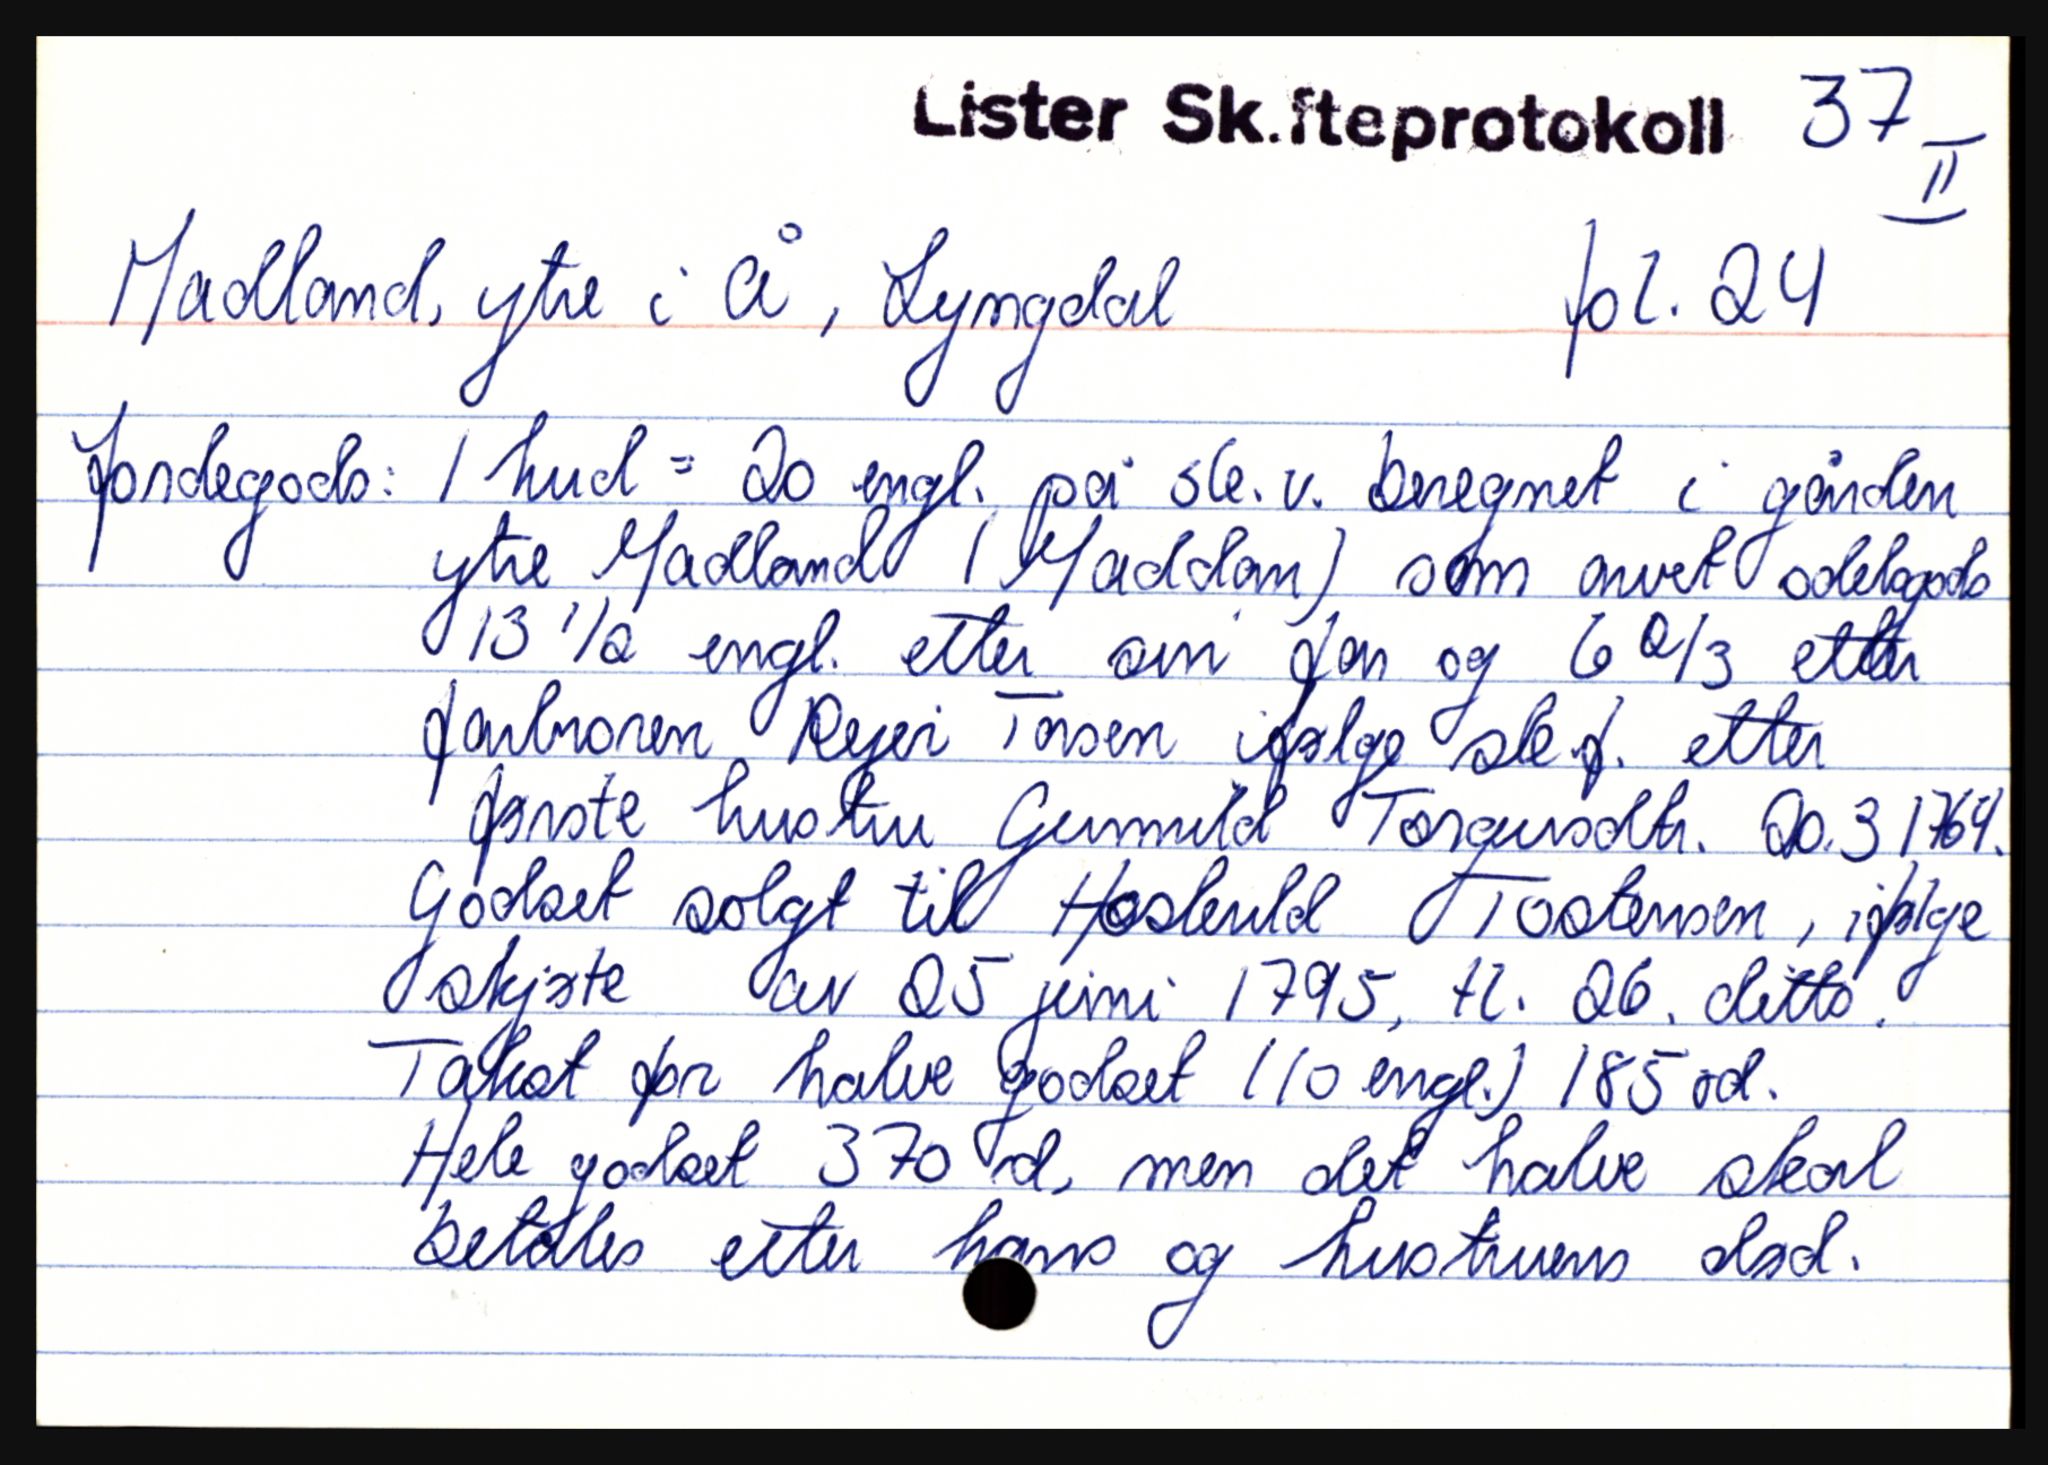 Lister Sk.fteprotokoll 37
II
Madland, ytre i Å, Lyngdal fol. 24
Jordegods: 1 hud = 20 engl. på sk. v. beregnet i gården
ytre Madland (Maddan) som arvet odelsgods
13 1/2 engl. etter sin far og 6 2/3 etter
farbroren Reyer Torsen ifølge sk.f. etter
første hustru Gunnild Torgusdtr. 20.3 1764.
Godset solgt til Hoskuld Tostensen, ifølge
skjøte av 25 juni 1795, tl. 26. ditto.
Takst for halve godset (10 engl.) 185 rd.
Hele godset 370 rd, men det halve skal
betales etter hans og hustruens død.